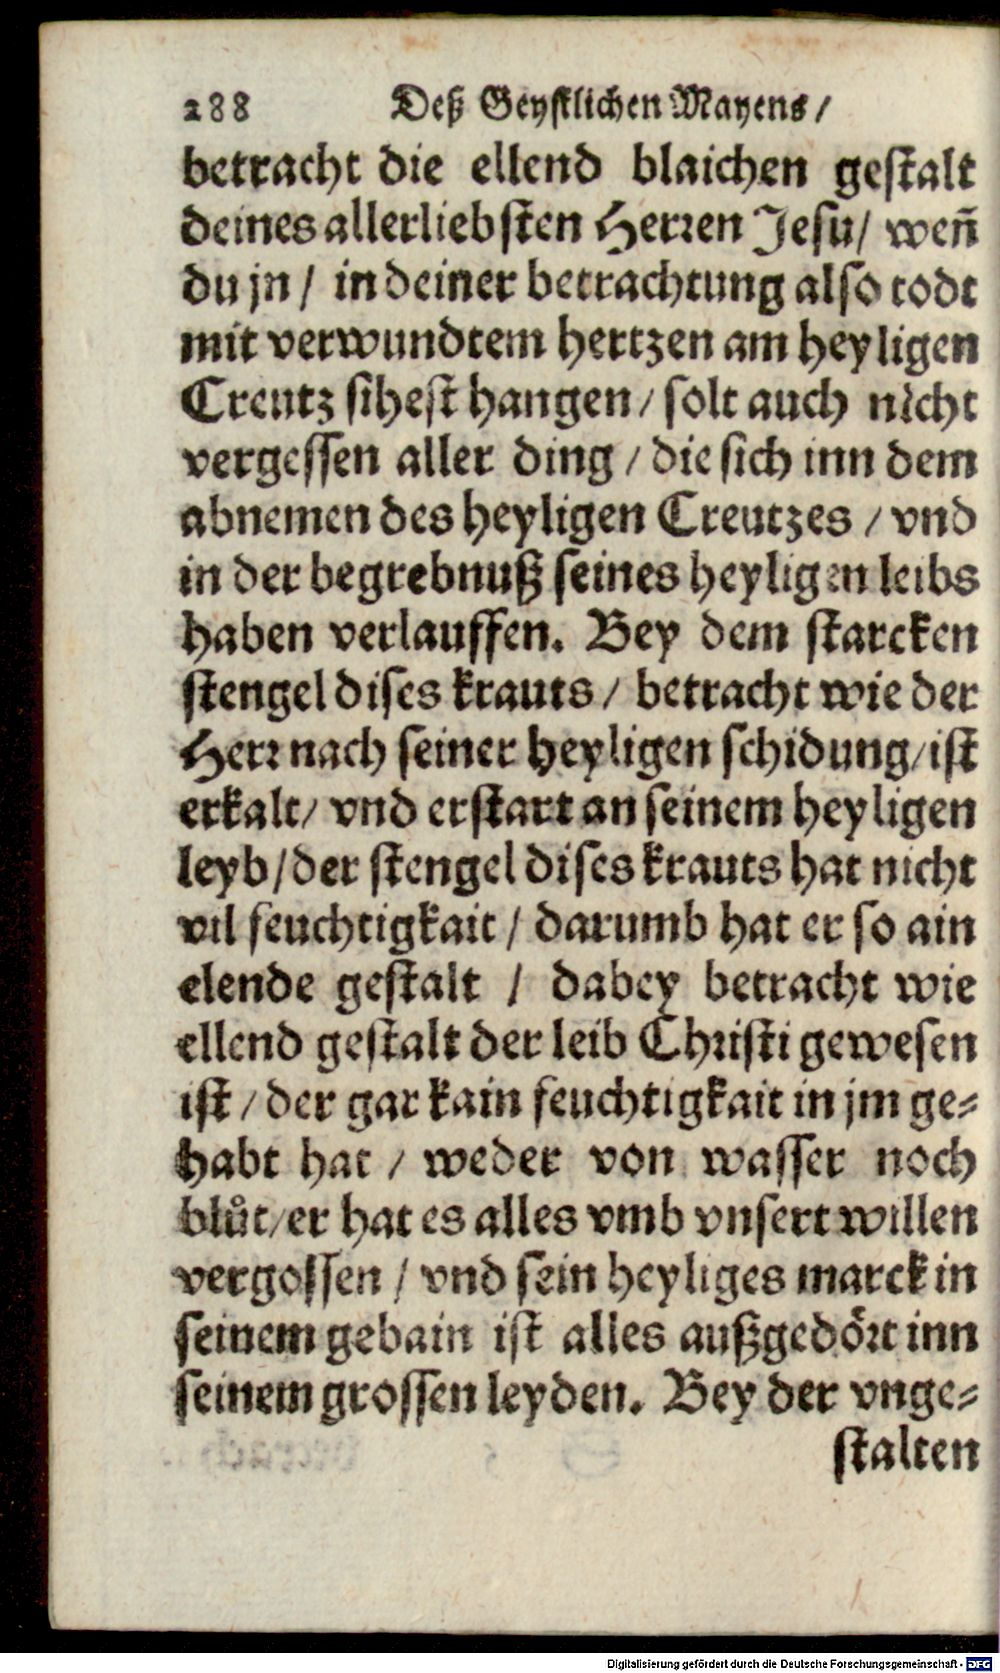 288 Deß Geystlichen Mayens /
betracht die ellend blaichen gestalt
deines allerliebsten Herren Jesu / wen̄
du jn / in deiner betrachtung also todt
mit verwundtem hertzen am heyligen
Creutz sihest hangen / solt auch nicht
vergessen aller ding / die sich inn dem
abnemen des heyligen Creutzes / vnd
in der begrebnuß seines heyligen leibs
haben verlauffen. Bey dem starcken
stengel dises krauts / betracht wie der
Herr nach seiner heyligen schidung / ist
erkalt / vnd erstart an seinem heyligen
leyb / der stengel dises krauts hat nicht
vil feuchtigkait / darumb hat er so ain
elende gestalt / dabey betracht wie
ellend gestalt der leib Christi gewesen
ist / der gar kain feuchtigkait in jm ge⸗
habt hat / weder von wasser noch
blůt / er hat es alles vmb vnsert willen
vergossen / vnd sein heyliges marck in
seinem gebain ist alles außgedört inn
seinem grossen leyden. Bey der vnge⸗
stalten
Digitalisierung gefördert durch die Deutsche Forschungsgemeinschaft - DFG